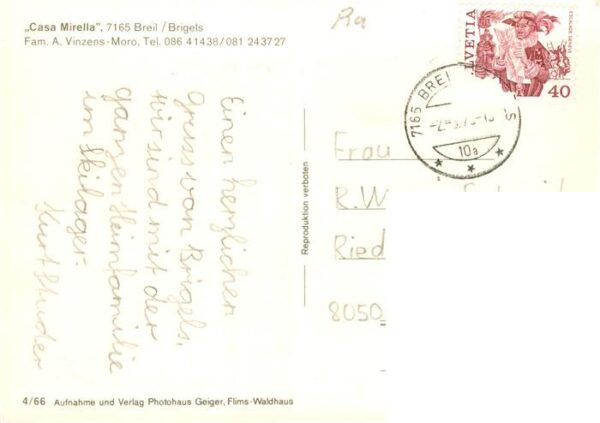 „Casa Mirella", 7165 Breil / Brigels
Fam. A. Vinzens-Moro, Tel. 086 41438 / 081 243727
Einen herzlichen
Gruss von Brigels,
wir sind mit der
ganzen Heimfamilie
im Skilager.
Kurt Studer
4/66 Aufnahme und Verlag Photohaus Geiger, Flims-Waldhaus
Reproduktion verboten
HELVETIA
ESCALADE GENÈVE
40
7165 BREI
10a
Frau
R.W
Ried
8050